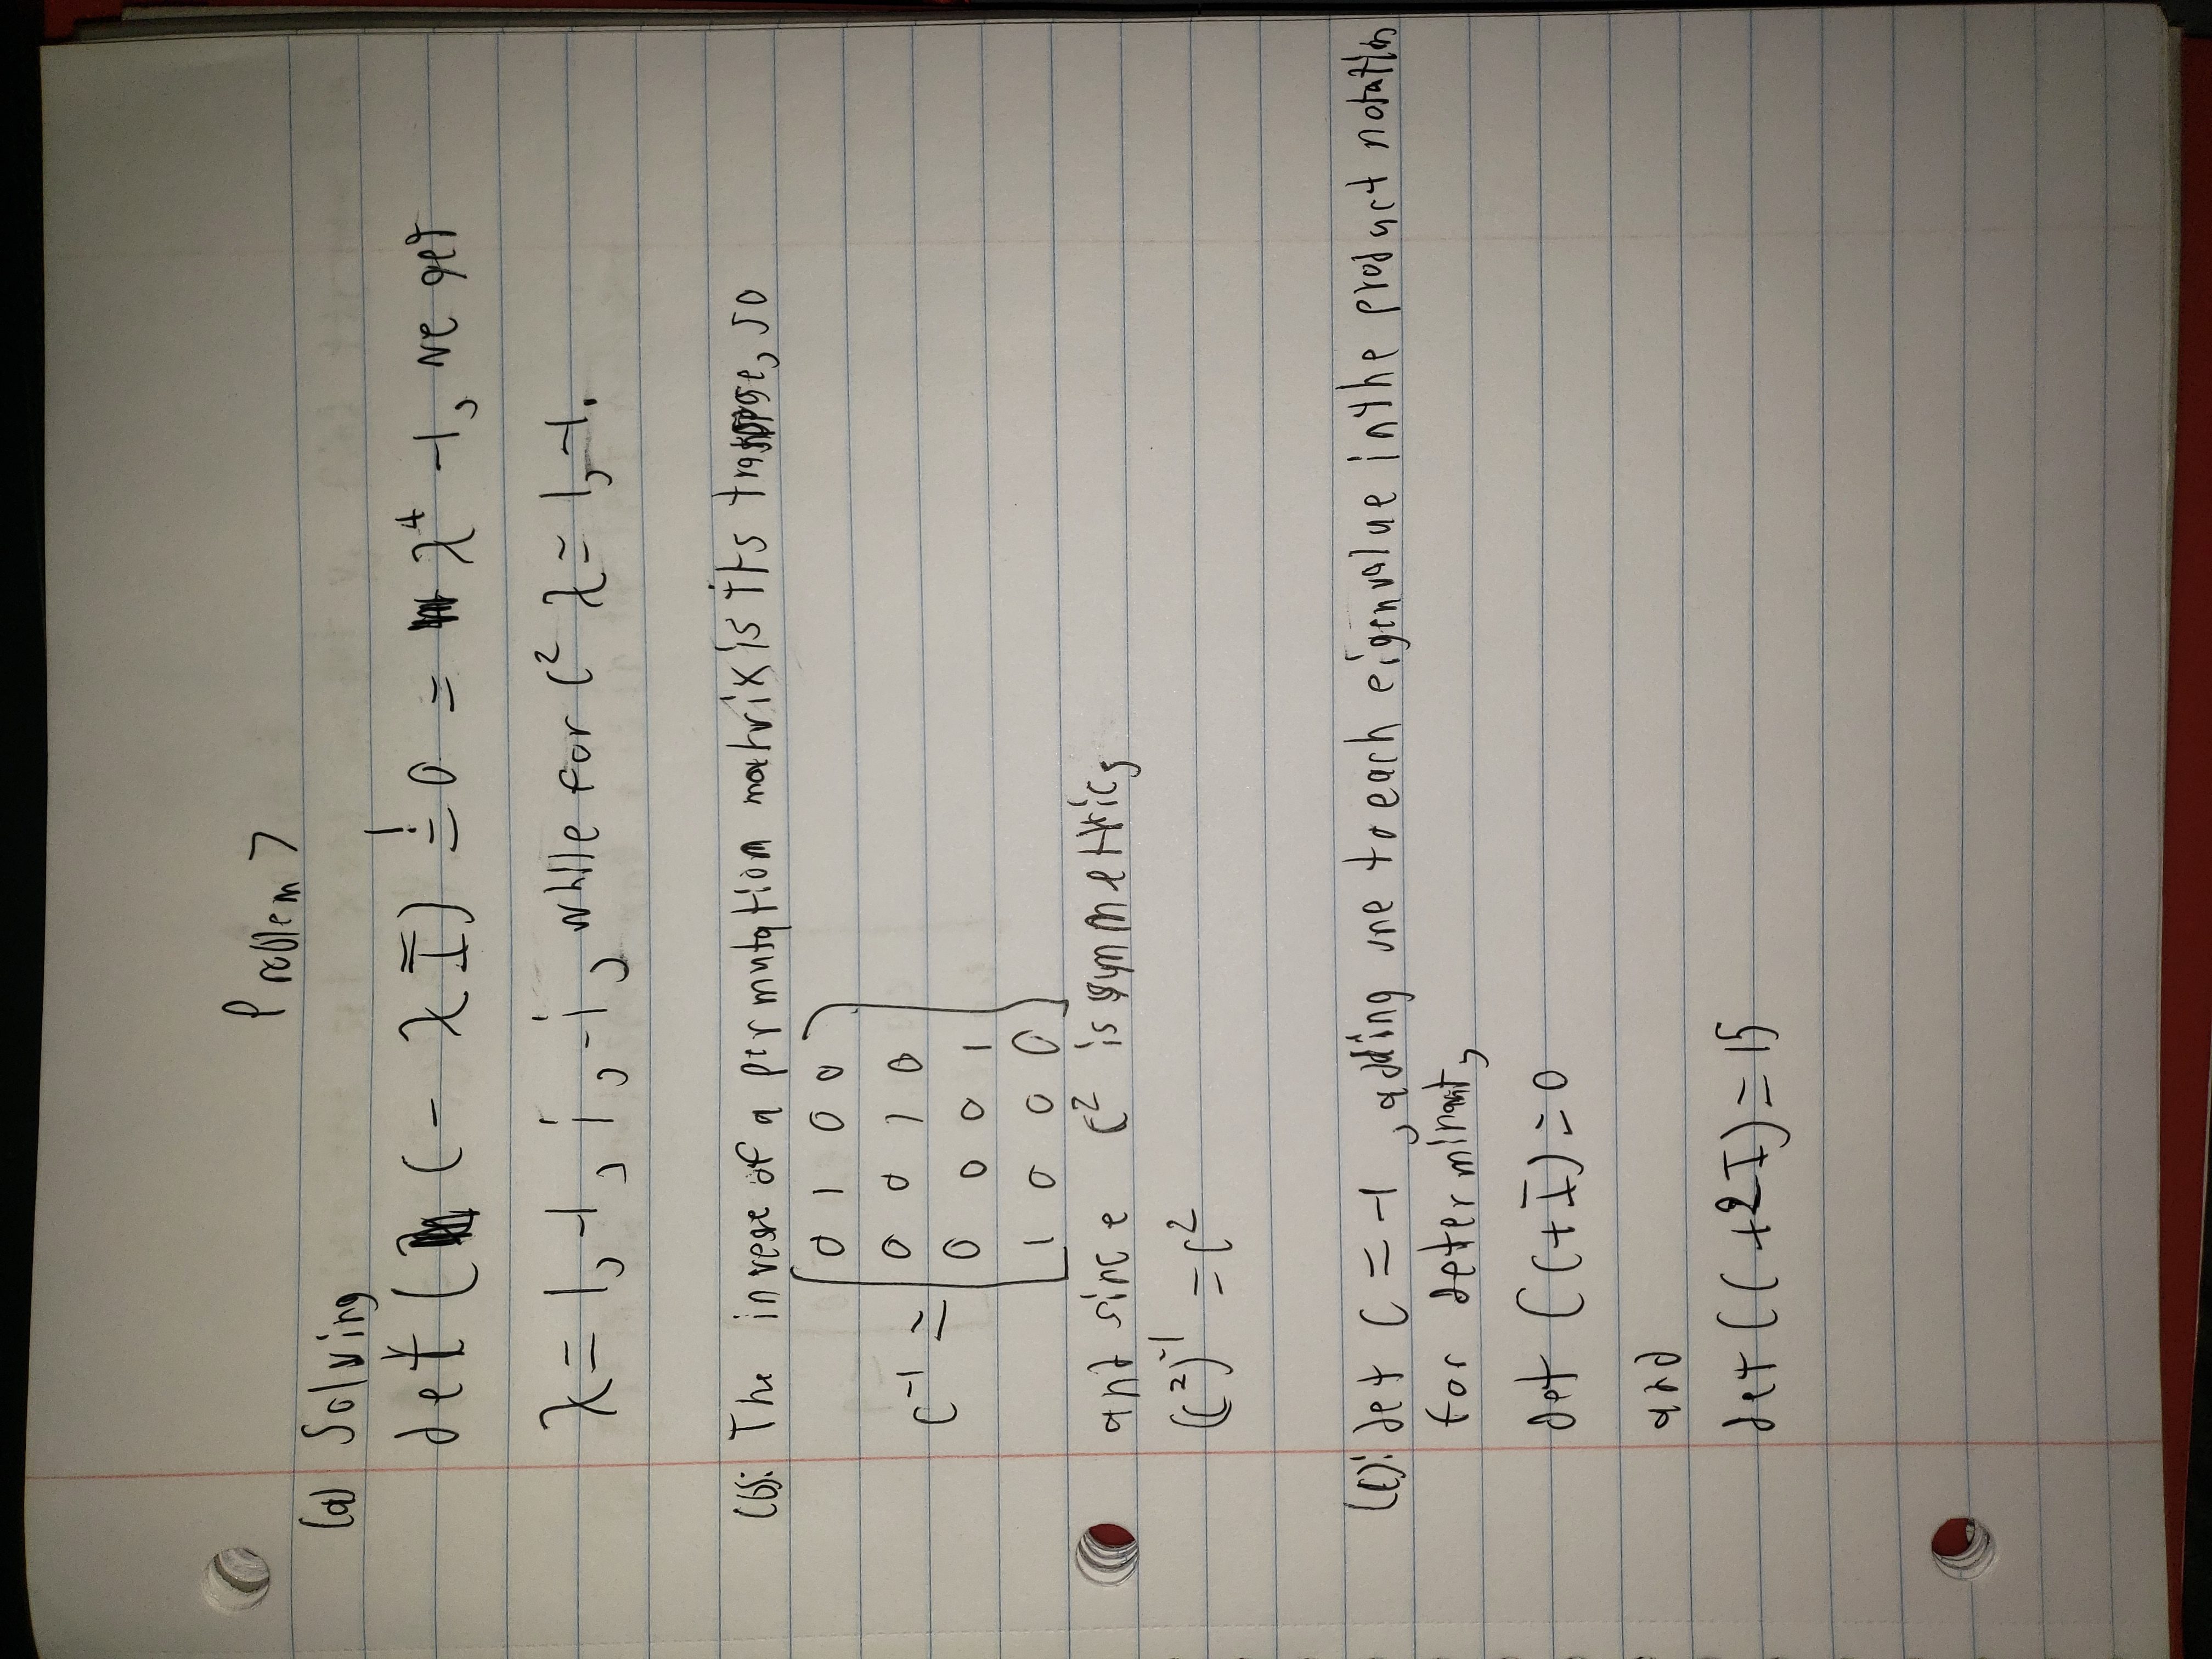 Problem 7
(a) Solving
det ( C - λI) != 0 = λ⁴ -1, we get
λ = 1, -1, i, -i, while for C² λ = 1, -1.
(b): The inverse of a permutation matrix is its transpose, so
C⁻¹ =
0 1 0 0
0 0 1 0
0 0 0 1
1 0 0 0
and since C² is symmetric,
(C²)⁻¹ = C²
(c): det C = -1, adding one to each eigenvalue in the product notation
for determinant,
det (C+I) = 0
and
det (C+2I) = 15